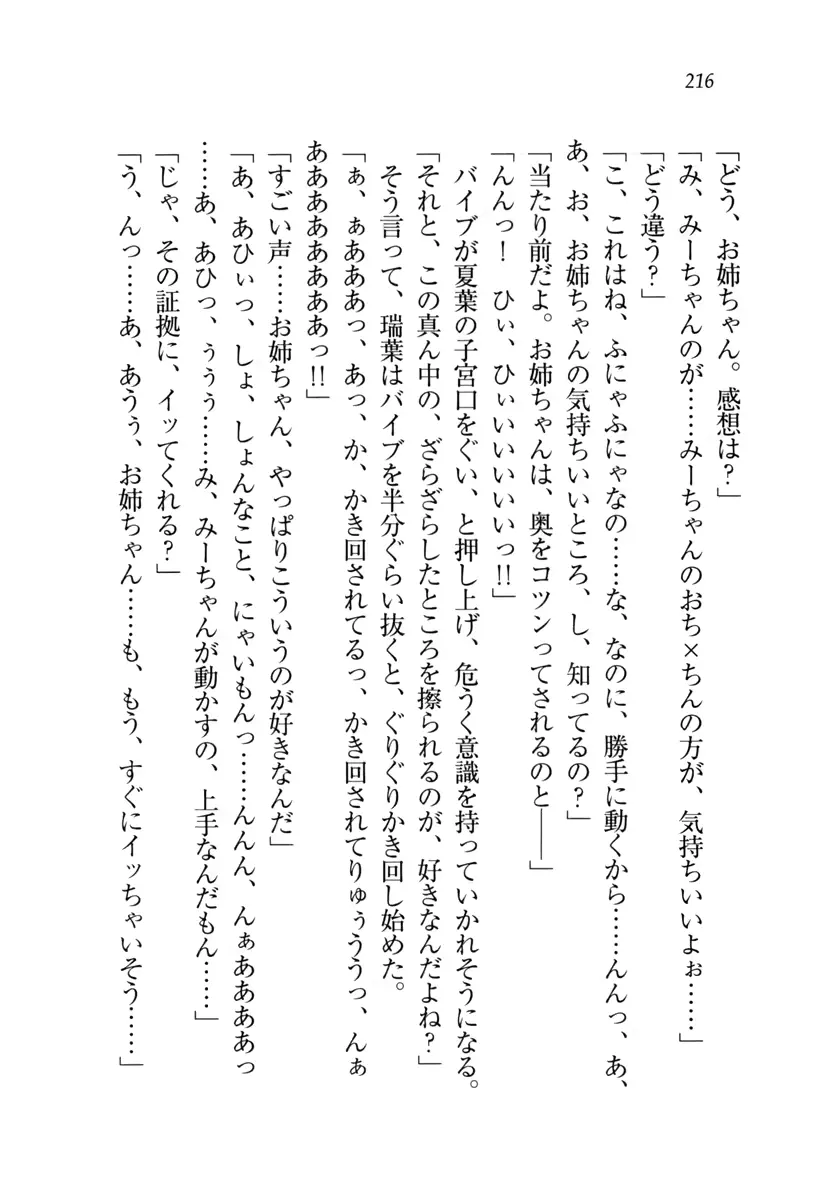 216
「どう、お姉ちゃん。感想は？」
「み、みーちゃんのが……みーちゃんのおち×ちんの方が、気持ちいいよぉ……」
「どう違う？」
「こ、これはね、ふにゃふにゃなの……な、なのに、勝手に動くから……んんっ、あ、
あ、お、お姉ちゃんの気持ちいいところ、し、知ってるの？」
「当たり前だよ。お姉ちゃんは、奥をコツンってされるのと――」
「んんっ！　ひぃ、ひぃいいいいいっ!!」
　バイブが夏葉の子宮口をぐい、と押し上げ、危うく意識を持っていかれそうになる。
「それと、この真ん中の、ざらざらしたところを擦られるのが、好きなんだよね？」
　そう言って、瑞葉はバイブを半分ぐらい抜くと、ぐりぐりかき回し始めた。
「ぁ、ぁあああっ、あっ、か、かき回されてるっ、かき回されてりゅぅううっ、んぁ
ああああああああっ!!」
「すごい声……お姉ちゃん、やっぱりこういうのが好きなんだ」
「あ、あひぃっ、しょ、しょんなこと、にゃいもんっ……んんん、んぁああああっ
……あ、あひっ、ぅぅぅ……み、みーちゃんが動かすの、上手なんだもん……」
「じゃ、その証拠に、イッてくれる？」
「う、んっ……あ、あうぅ、お姉ちゃん……も、もう、すぐにイッちゃいそう……」